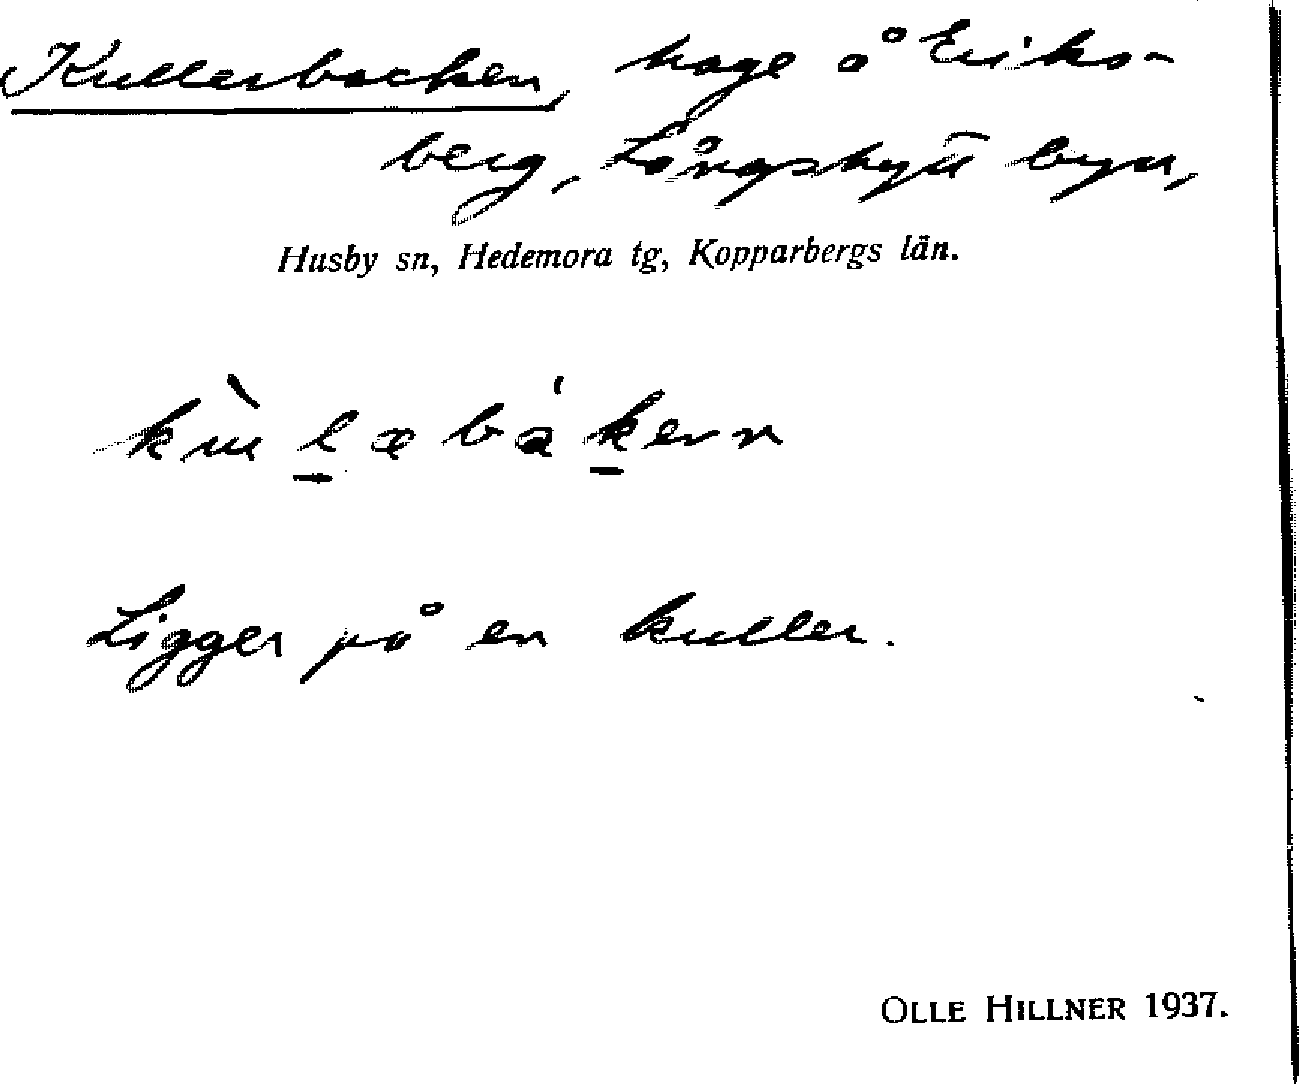 Kullerbacken, hage å Eriks-
berg, Långshytt byn,
Husby sn, Hedemora tg, Kopparbergs län.
Ligger på en kuller.
OLLE HILLNER 1937.